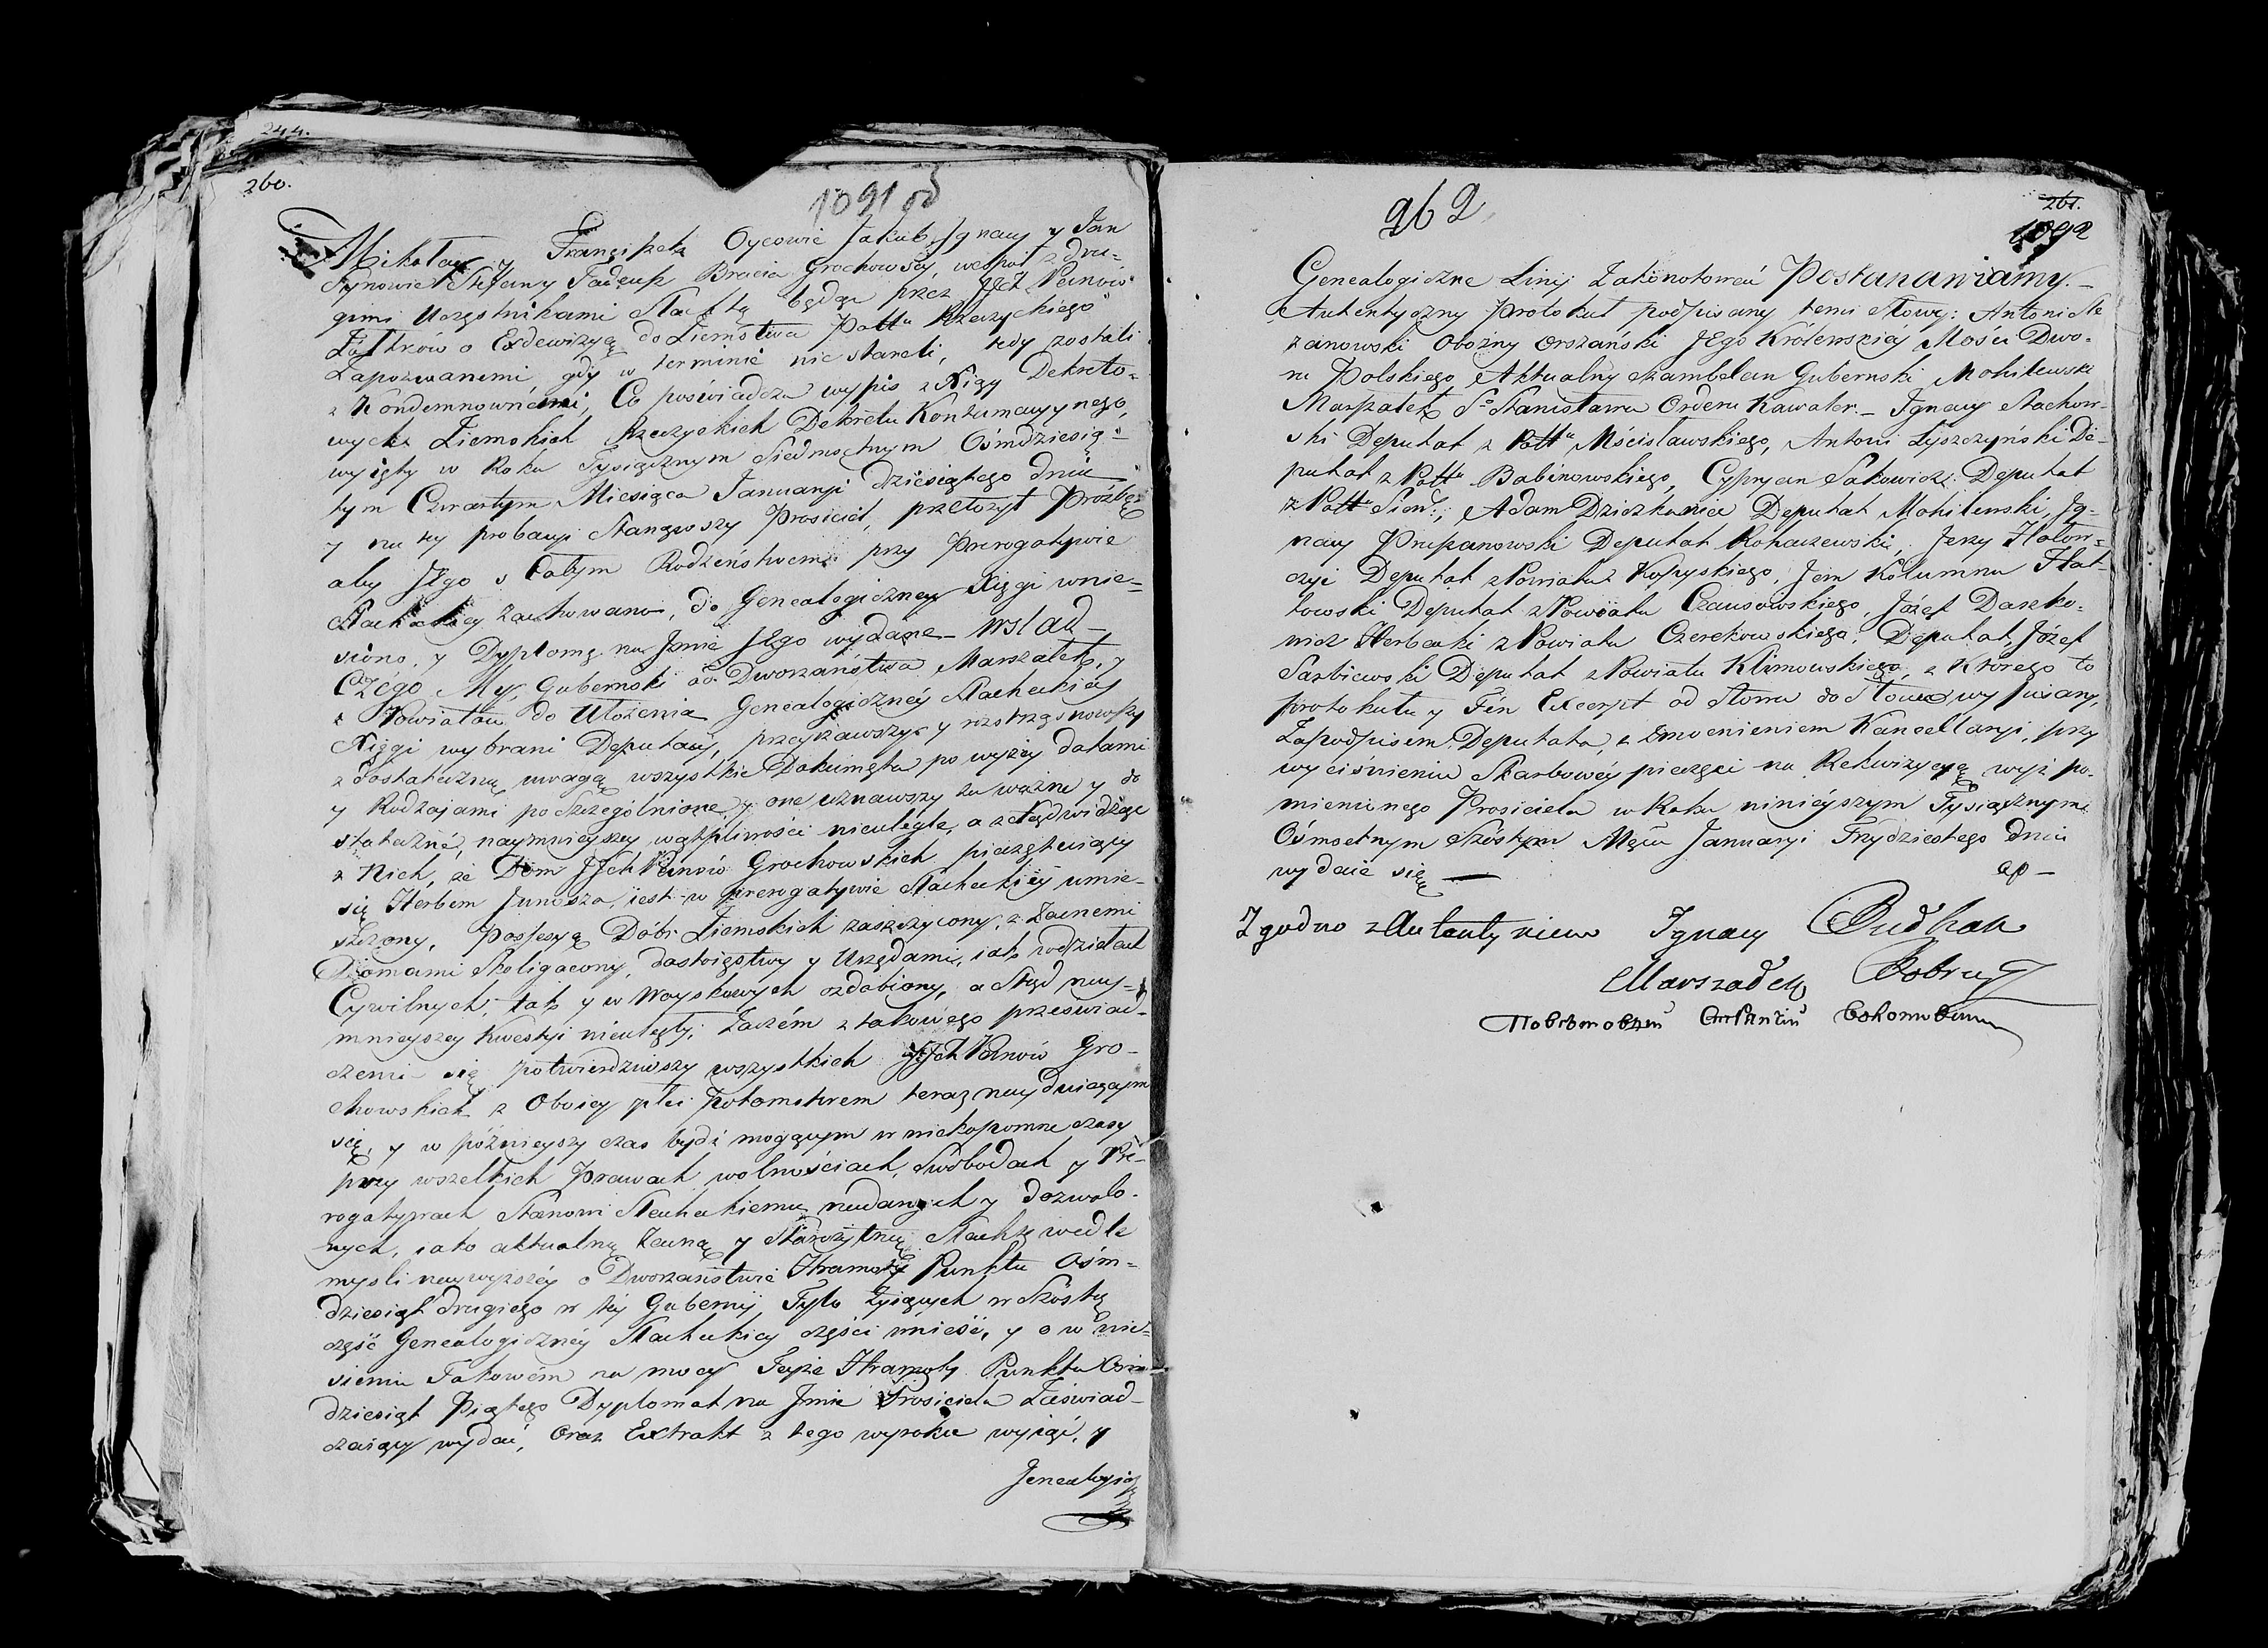 244.
260.
1091 об
Mikołay y Franciszek Oycowie Jakub, Ignacy y Jan
Synowie Stefany Tadeusz Bracia Grochowscy, wespoł z dru-
giemi Uczęstnikami Szlachtą będąc przez JJch Panów
Łosktrów o Exdewizyą do Ziemstwa Pottu Rzeczyckiego
Zapozwanemi, gdy w terminie nie stareli, tedy zostali
z Kondemnowanemi, Co poświadcza wypis z Xiąg Dekreto-
wych Ziemskich Rzeczyckich Dekretu Kontumacyynego,
wyięty w Roku Tysiącznym Siedmsetnym Ośmdziesią-
tym Czwartym Miesiąca Januaryi dziesiątego dnia
y na tey probacyi Stanąwszy Prosiciel, przełożył Prożbę
aby JEgo z Całym Rodzeństwem przy Prerogatywie
Szlacheckiey zachowano, do Genealogiczney Xięgi wnie-
siono, y Dyplomę na Jmie JEgo wydane – Wslad
Czego My, Gubernski od Dworzaństwa Marszałek, y
z Powiatow do Ułożenia Genealogiczney Szlacheckiey
Xięgi wybrani Deputaci, przeyżawszy y rostrząsnowszy
z dostateczną uwagą wszystkie Dokumęta po wyżey datami
y Rodzajami po Szczegolnione, y one uznawszy za ważne y do
stateczne, naymnieyszey wątpliwości nieuległe, a ztąd widząc
z Nich, że Dom JJch Panów Grochowskich pieczętuiący
się Herbem Junosza, iest w prerogatywie Szlacheckiey umie-
szczony, Possesyą Dóbr Ziemskich zaszczycony, z Zacnemi
Domami Skoligacony, dostoięstwy y Urzędami, iak w działach
Cywilnych, tak y w Woyskowych ozdobiony, a Stąd nay-
mnieyszey kwestyi nieuległy; Zaczém z takowego przeswiad-
czenia się potwierdziwszy wszystkich JJch Panów Gro-
chowskich z Oboiey płci Potomstwem teraz nayduiącym
się, y w poźnieyszy czas bydź mogącym w niekopomne czasy
przy wszelkich Prawach wolnościach, Swobodach y Pre-
rogatywach Stanowi Szlacheckiemu nadanych y dozwolo-
nych, iako aktualną Zacną y Starożytną Szlachtę wedle
mysli naywyższey o Dworzaństwie Hramoty Punktu Ośm-
dziesiąt drugiego w tey Gubernij Tyło Żyiących w Szóstą
część Genealogiczney Szlacheckiey części wnieść, y o w nie-
sieniu Takowém na mocy Teyże Hramoty Punktu Ośm-
dziesiąt Piątego Dyplomat na Jmie Prosiciela Zaświad-
czaiący wydać, Oraz Extrakt z tego wyroku wyiąć, y
Jenealogią
262
261.
1092
Genealogiczne Linij Zakonotować Postanawiamy.
Autentyczny Protokuł podpisany temi słowy: Antoni Ste
zanowski Obożny Orszański JEgo Królewskiéy Mości Dwo-
ru Polskiego, Aktualny Szambelan Gubernski Mohilewski
Marszałek S-o Stanisława Orderu Kawaler. – Ignacy Stachow-
ski Deputat z Pottu Mścisławskiego, Antoni Łyszczyński De-
putat z Pottu Babinowskiego, Cypryan Sakowicz Deputat
z Pottu Sień:, Adam Dziczkaniec Deputat Mohilewski, Jg-
nacy Przepanowski Deputat Rohaczewski, Jerzy Hołow-
czyc Deputat z Powiatu Kopyskiego, Jan Kolumna Hał-
towski Deputat z Powiatu Czausowskiego, Józef Daszko-
wicz Herbecki z Powiatu Czerekowskiego Deputat, Józef
Sarbiewski Deputat z Powiatu Klimowskiego, z Którego to
protokułu y Ten Excerpt od Słowa do Słowa wypisany,
Zapodpisem Deputata, z Zmocnieniem Kancellaryi, przy
wyciśnieniu Skarbowéy pieczęci na Rekwizycyą wyż po-
mienionego Prosiciela w Roku ninieyszym Tysiącznym
Ośmsetnym Szóstym Mąca Januaryi Trzydziestego dnia
wydaie się —
Zgodno z Autentykiem Ignacy
Marszałek Bobruy